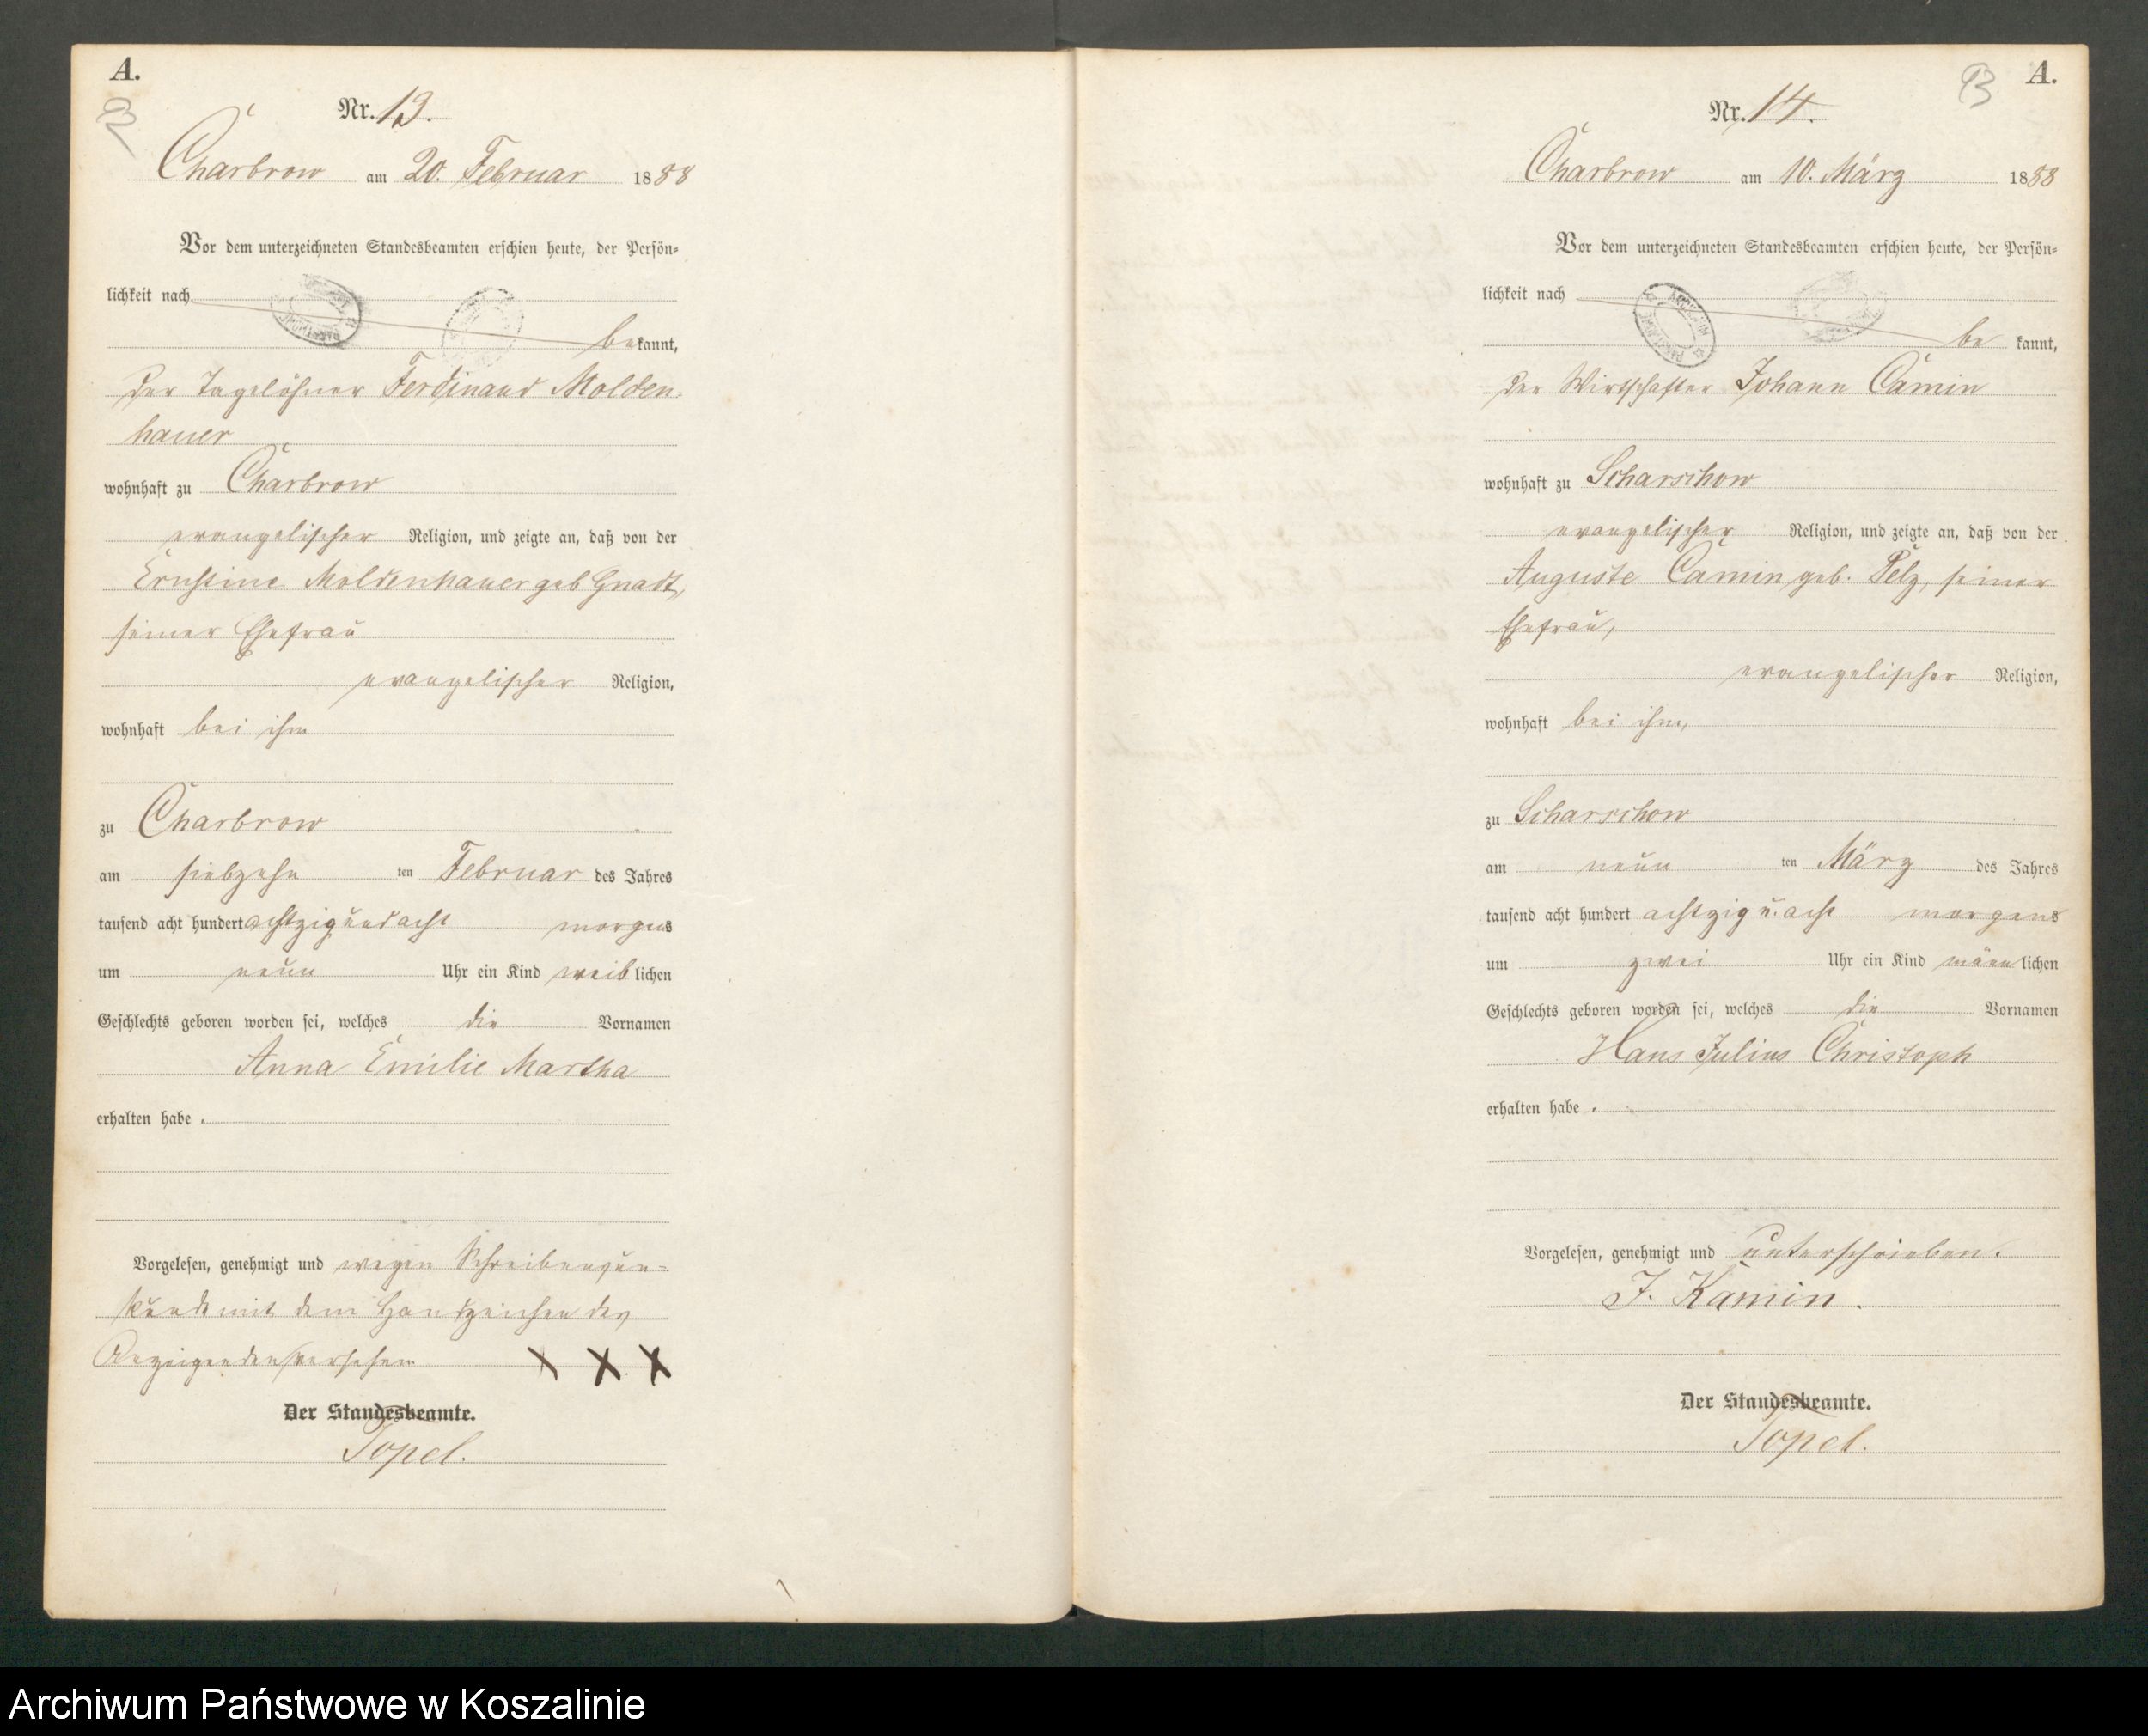 A.
Nr. 13.
Charbrow am 20. Februar 1888
Vor dem unterzeichneten Standesbeamten erschien heute, der Persön-
lichkeit nach
bekannt,
der Tagelöhner Ferdinand Molden-
hauer
wohnhaft zu Charbrow
evangelischer Religion, und zeigte an, daß von der
Ernstine Moldenhauer geb Gnadt,
seiner Ehefrau
evangelischer Religion,
wohnhaft bei ihm
zu Charbrow
am siebzehn ten Februar des Jahres
tausend acht hundert achtzig und acht morgens
um neun Uhr ein Kind weiblichen
Geschlechts geboren worden sei, welches die Vornamen
Anna Emilie Martha
erhalten habe.
Vorgelesen, genehmigt und wegen Schreibensun-
kunde mit dem Handzeichen des
Anzeigenden versehen
X X X
Der Standesbeamte.
Topel.
A.
Nr. 14.
Charbrow am 10. März 1888
Vor dem unterzeichneten Standesbeamten erschien heute, der Persön-
lichkeit nach
be kannt,
der Wirthschafter Johann Camin
wohnhaft zu Scharschow
evangelischer Religion, und zeigte an, daß von der
Auguste Camin, geb. Pelz, seiner
Ehefrau,
evangelischer Religion,
wohnhaft bei ihm,
zu Scharschow
am neun ten März des Jahres
tausend acht hundert achtzig u. acht morgens
um zwei Uhr ein Kind männlichen
Geschlechts geboren worden sei, welches die Vornamen
Hans Julius Christoph
erhalten habe.
Vorgelesen, genehmigt und unterschrieben.
J. Kamin.
Der Standesbeamte.
Topel.
Archiwum Państwowe w Koszalinie